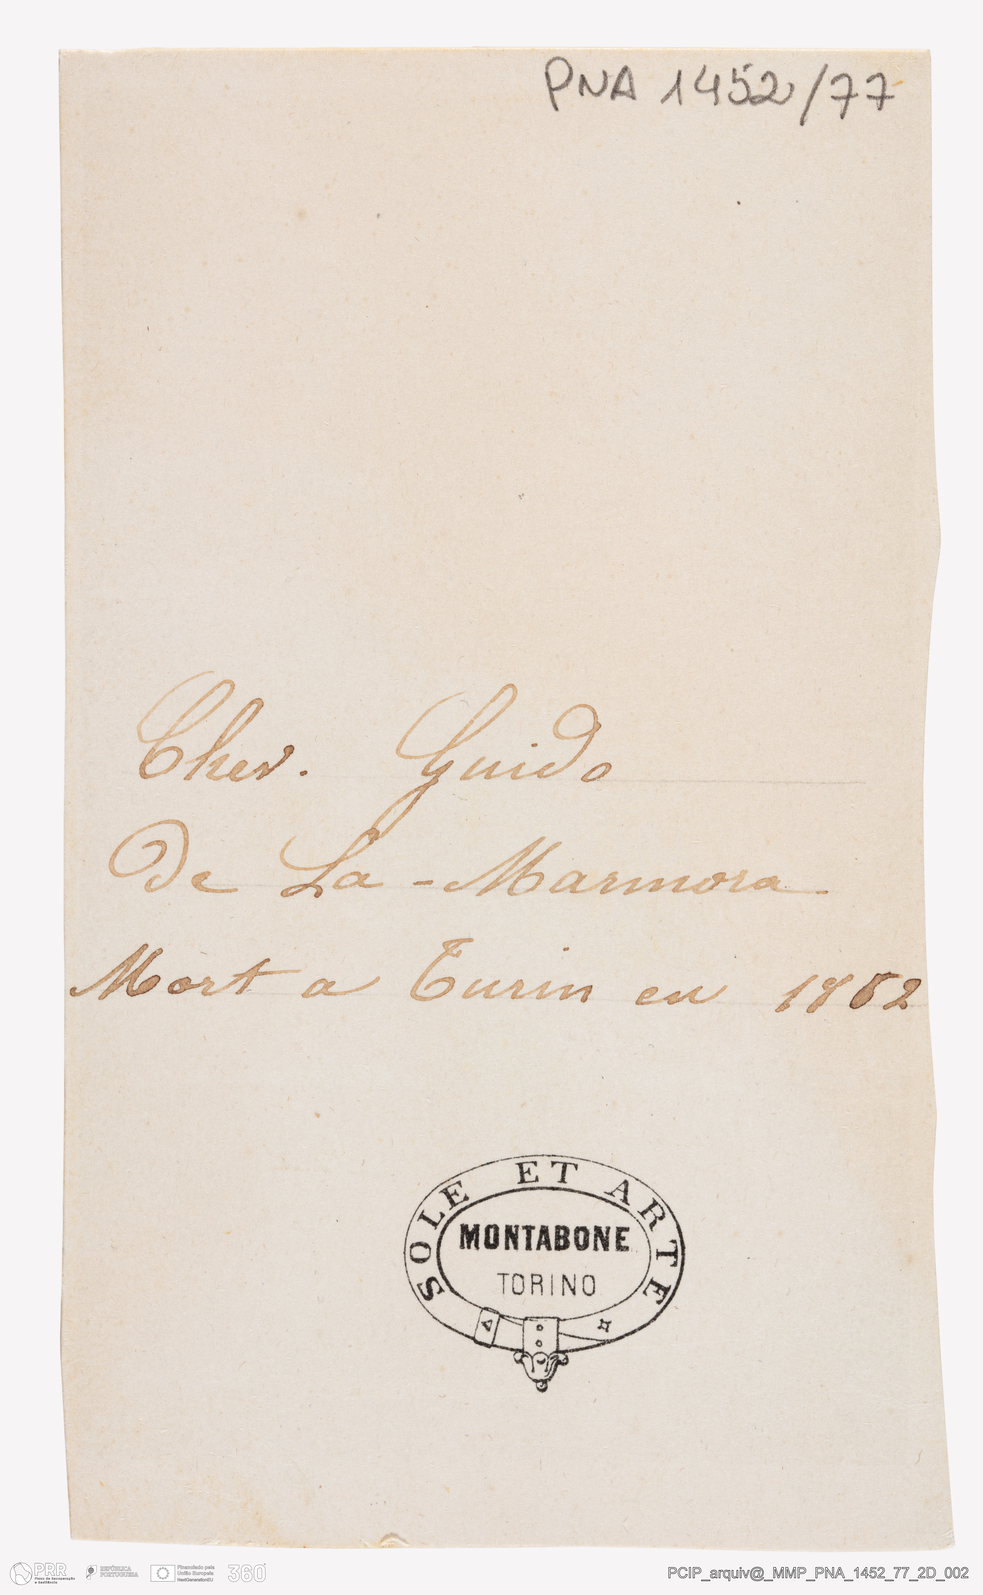 PNA 1452/77
Chev. Guido
De La-Marmora
Mort a Turin en 1862
SOLE ET ARTE
MONTABONE
TORINO
PRR
Plano de Recuperação
e Resiliência
REPÚBLICA
PORTUGUESA
Financiado pela
União Europeia
NextGenerationEU
360
PCIP_arquiv@_MMP_PNA_1452_77_2D_002